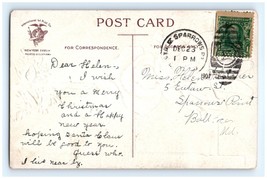 POST CARD
FOR CORRESPONDENCE.
SPARROWS
DEC 23
1 PM
Dear Helen:-
I wish
you a Merry
Christmas
and a Happy
new year
hoping Santa Claus
will be good to you.
Guess who.
I live near by.
Miss
5
Sparrows Point
Balt. Co.
Md.